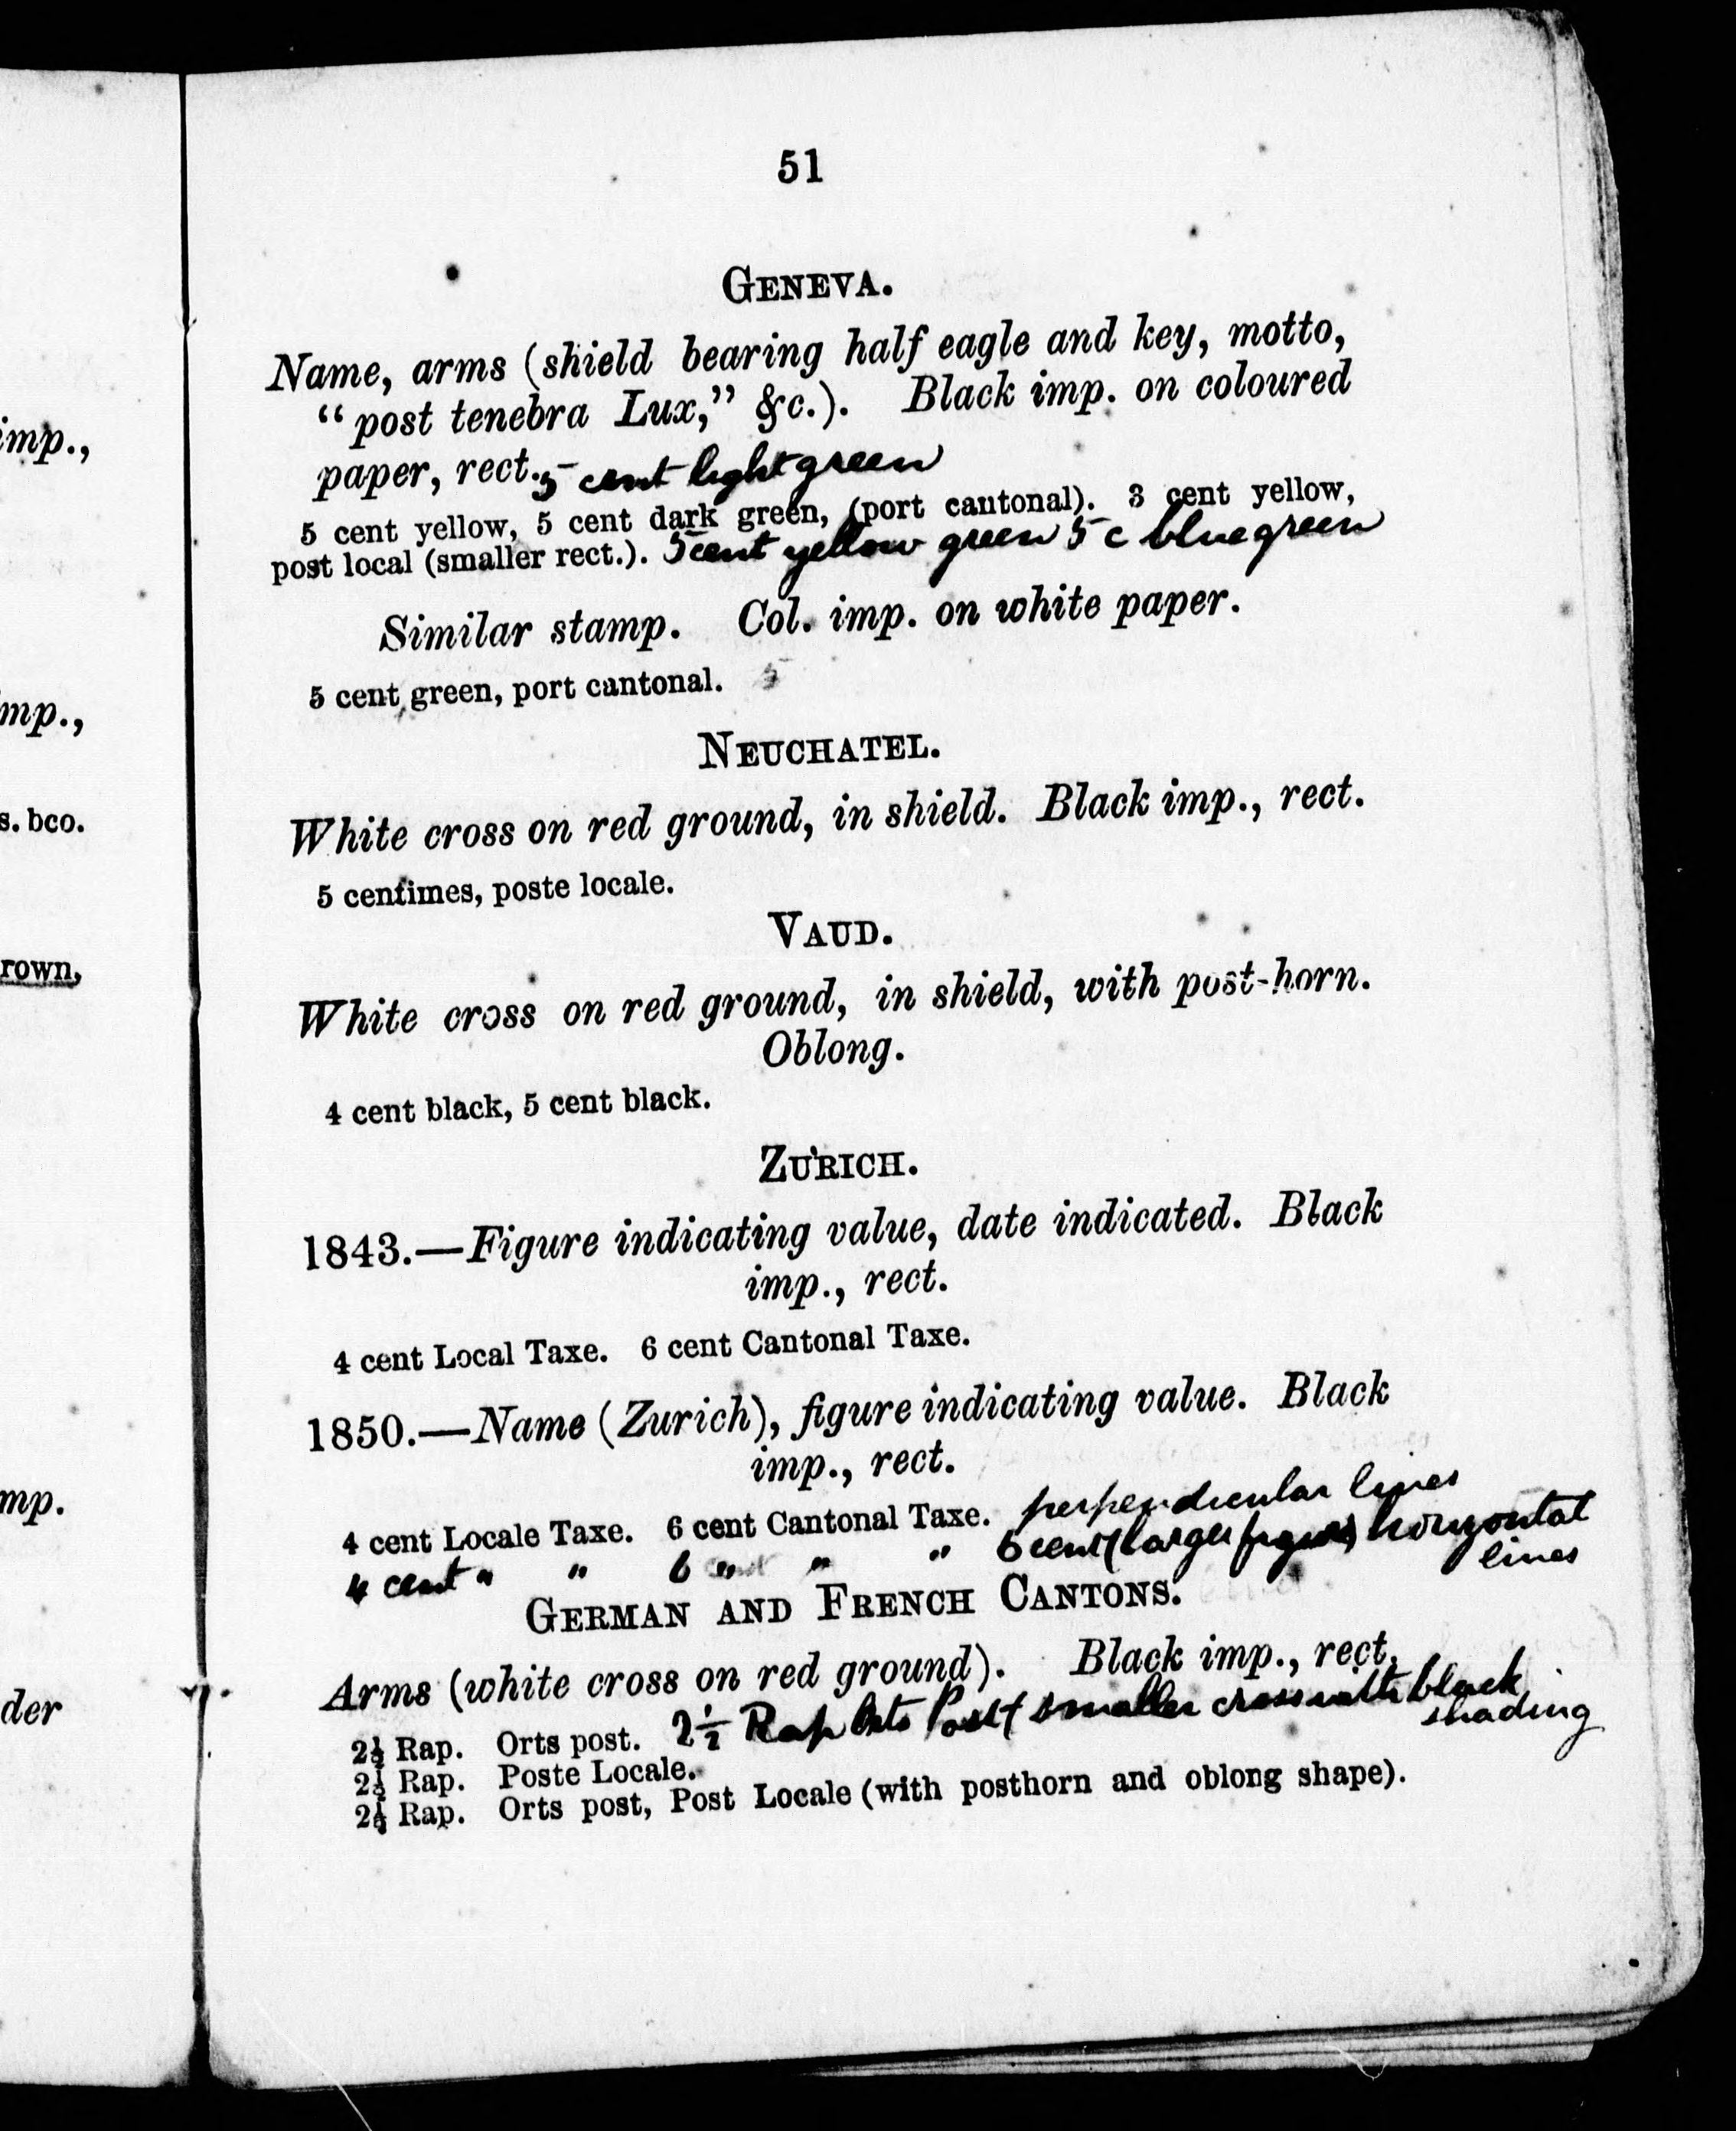 51
GENEVA.
Name, arms (shield bearing half eagle and key, motto,
“post tenebra Lux,” &c.). Black imp. on coloured
paper, rect. 5 cent light green
5 cent yellow, 5 cent dark green, (port cantonal). 3 cent yellow,
post local (smaller rect.). 5 cent yellow green 5 c blue green
Similar stamp. Col. imp. on white paper.
5 cent green, port cantonal.
NEUCHATEL.
White cross on red ground, in shield. Black imp., rect.
5 centimes, poste locale.
VAUD.
White cross on red ground, in shield, with post-horn.
Oblong.
4 cent black, 5 cent black.
ZURICH.
1843.—Figure indicating value, date indicated. Black
imp., rect.
4 cent Local Taxe. 6 cent Cantonal Taxe.
1850.—Name (Zurich), figure indicating value. Black
imp., rect.
4 cent Locale Taxe. 6 cent Cantonal Taxe. perpendicular lines
4 cent " " 6 " " " 6 cent (larger figures) horizontal
lines
GERMAN AND FRENCH CANTONS.
Arms (white cross on red ground). Black imp., rect.
2½ Rap. Orts post. 2½ Rap Orts Post smaller cross with black
shading
2½ Rap. Poste Locale.
2½ Rap. Orts post, Post Locale (with posthorn and oblong shape).
imp.,
mp.,
s. bco.
rown,
mp.
der